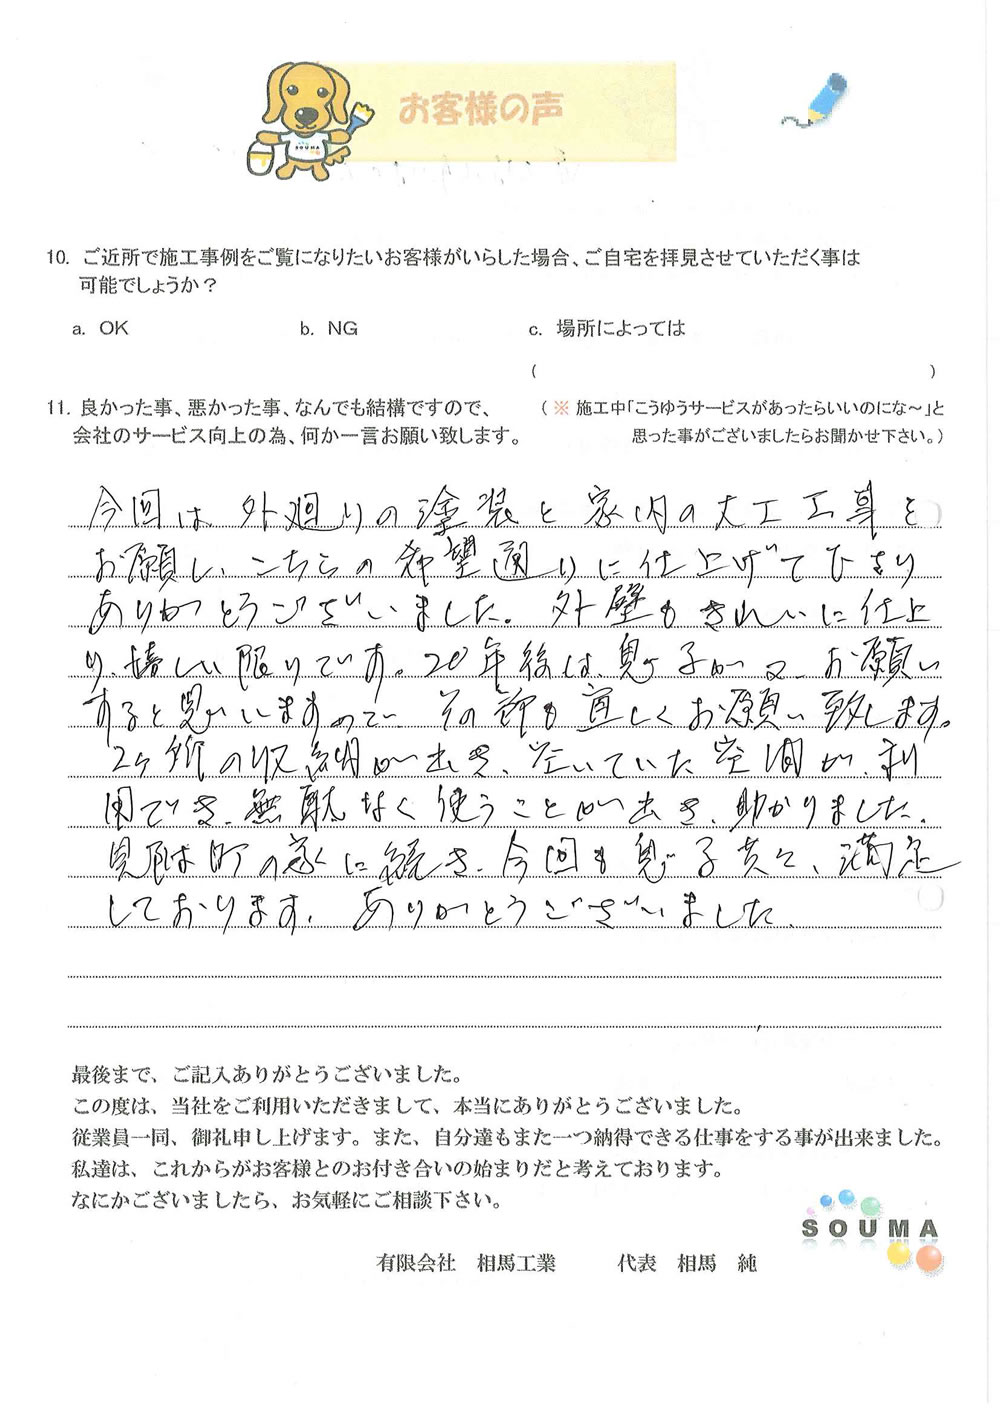 お客様の声
SOUMA
10. ご近所で施工事例をご覧になりたいお客様がいらした場合、ご自宅を拝見させていただく事は
可能でしょうか？
a. OK b. NG c. 場所によっては
( )
11. 良かった事、悪かった事、なんでも結構ですので、 (※ 施工中「こうゆうサービスがあったらいいのにな～」と
会社のサービス向上の為、何か一言お願い致します。 思った事がございましたらお聞かせ下さい。)
今回は外廻りの塗装と家内の大工工事を
お願し、こちらの希望通りに仕上げて
ありがとうございました。外壁もきれいに仕上
り、嬉しい限りです。20年後は、息子が又、お願い
すると思いますので その節も宜しくお願い致します。
2ヶ所の収納が出き、空いていた空間が、利
用でき、無駄なく使うことが出き、助かりました。
町の家に続き、今回も息子共々、満足
しております。ありがとうございました。
最後まで、ご記入ありがとうございました。
この度は、当社をご利用いただきまして、本当にありがとうございました。
従業員一同、御礼申し上げます。また、自分達もまた一つ納得できる仕事をする事が出来ました。
私達は、これからがお客様とのお付き合いの始まりだと考えております。
なにかございましたら、お気軽にご相談下さい。
SOUMA
有限会社 相馬工業 代表 相馬 純